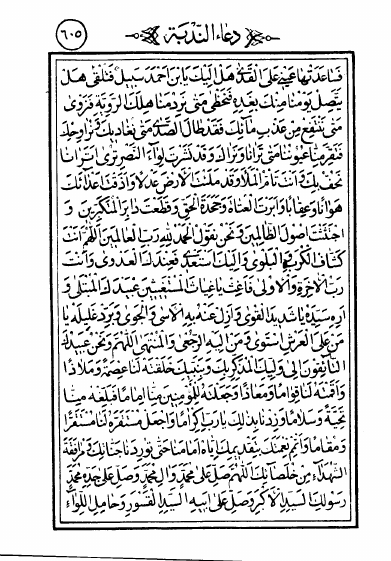 ٦٠٥ دعاء الندبة
فساعدتها عيني على القذى هل إليك يا بن أحمد سبيل فتلقى هل
يتصل يومنا منك بغده فنحظى متى نرد مناهلك الروية فنروى
متى ننتفع من عذب مائك فقد طال الصدى متى نغاديك ونراوحك
فنقر منها عيوننا متى ترانا ونراك وقد نشرت لواء النصر ترى أترانا
نحف بك وأنت تأم الملأ وقد ملأت الأرض عدلا وأذقت أعدائك
هوانا وعقابا وأبرت العتاة وجحدة الحق وقطعت دابر المتكبرين و
اجتثثت أصول الظالمين ونحن نقول الحمد لله رب العالمين اللهم أنت
كشاف الكرب والبلوى وإليك أستعدي فعندك العدوى وأنت
رب الآخرة والأولى فأغث يا غياث المستغيثين عبيدك المبتلى و
أره سيده يا شديد القوى وأزل عنه به الأسى والجوى وبرد غليله يا
من على العرش استوى ومن إليه الرجعى والمنتهى اللهم ونحن عبيدك
التائقون إلى وليك المذكر بك وبنبيك خلقته لنا عصمة وملاذا
وأقمته لنا قواما ومعاذا وجعلته للمؤمنين منا إماما فبلغه منا
تحية وسلاما وزدنا بذلك يا رب إكراما واجعل مستقره لنا مستقرا
ومقاما وأتمم نعمتك بتقديمك إياه أمامنا حتى توردنا جنانك ومرافقة
الشهداء من خلصائك اللهم صل على محمد وآل محمد وصل على جده محمد
رسولك السيد الأكبر وصل على أبيه السيد القسور وحامل اللواء